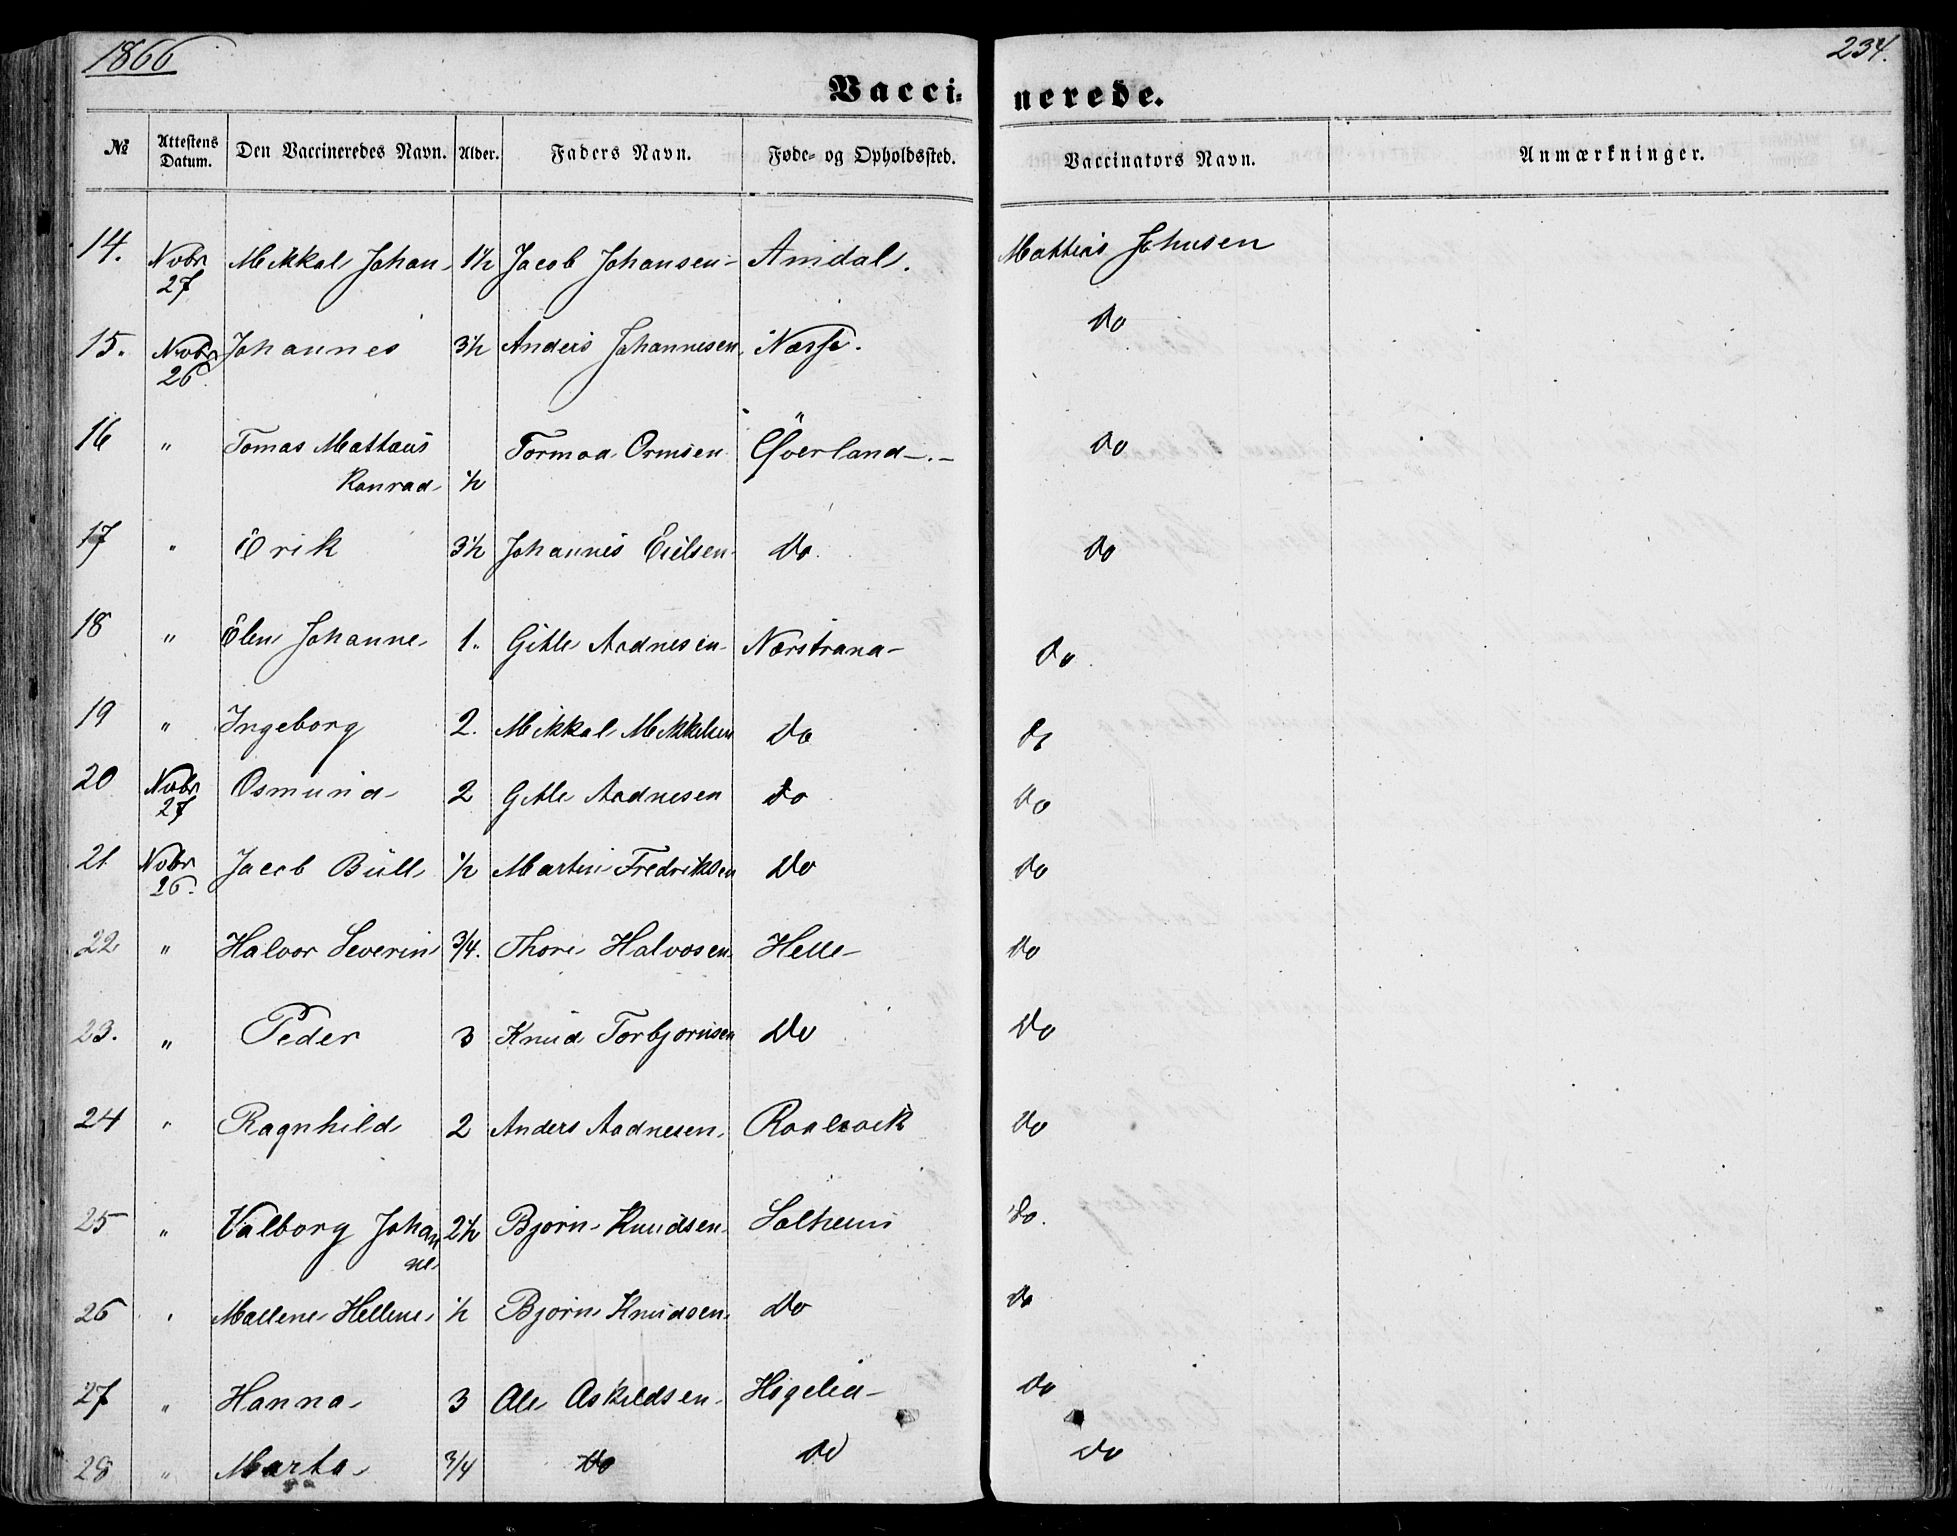 1866
234.
Vacci-
nerede.
№ Attestens Datum. Den Vaccineredes Navn. Alder. Faders Navn. Føde- og Opholdssted. Vaccinators Navn. Anmærkninger.
14. Nobr 27 Mikkal Johan 1½ Jacob Johansen Amdal. Mattias Johnsen
15. Nobr 26. Johannes 3½ Anders Johannesen Næsse. Do
16 " Tomas Mattæus Konrad ½ Tormod Ormsen Øverland Do
17 " Erik 3½ Johannes Eielsen Do. Do
18 " Elen Johanne 1. Gitle Aadnesen Nærstrand Do.
19 " Ingeborg 2. Mikkal Mikkelsen Do Do
20 Nobr 27 Osmund 2 Gitle Aadnesen Do Do
21 Nobr 26. Jacob Büll ½ Martin Fredriksen Do Do
22 " Halvor Severin 3/4. Thore Halvosen Helle Do
23. " Peder 3 Knud Torbjornsen Do Do
24 " Ragnhild 2 Anders Aadnesen Do
25 " Valborg Johanne 2½ Bjørn Knudsen Solheim Do.
26 " Mallene Hellene ½ Bjørn Knudsen Do Do
27 " Hanna 3 Ole Askildsen Hogelia Do
28 " Marta 3/4 Do Do Do